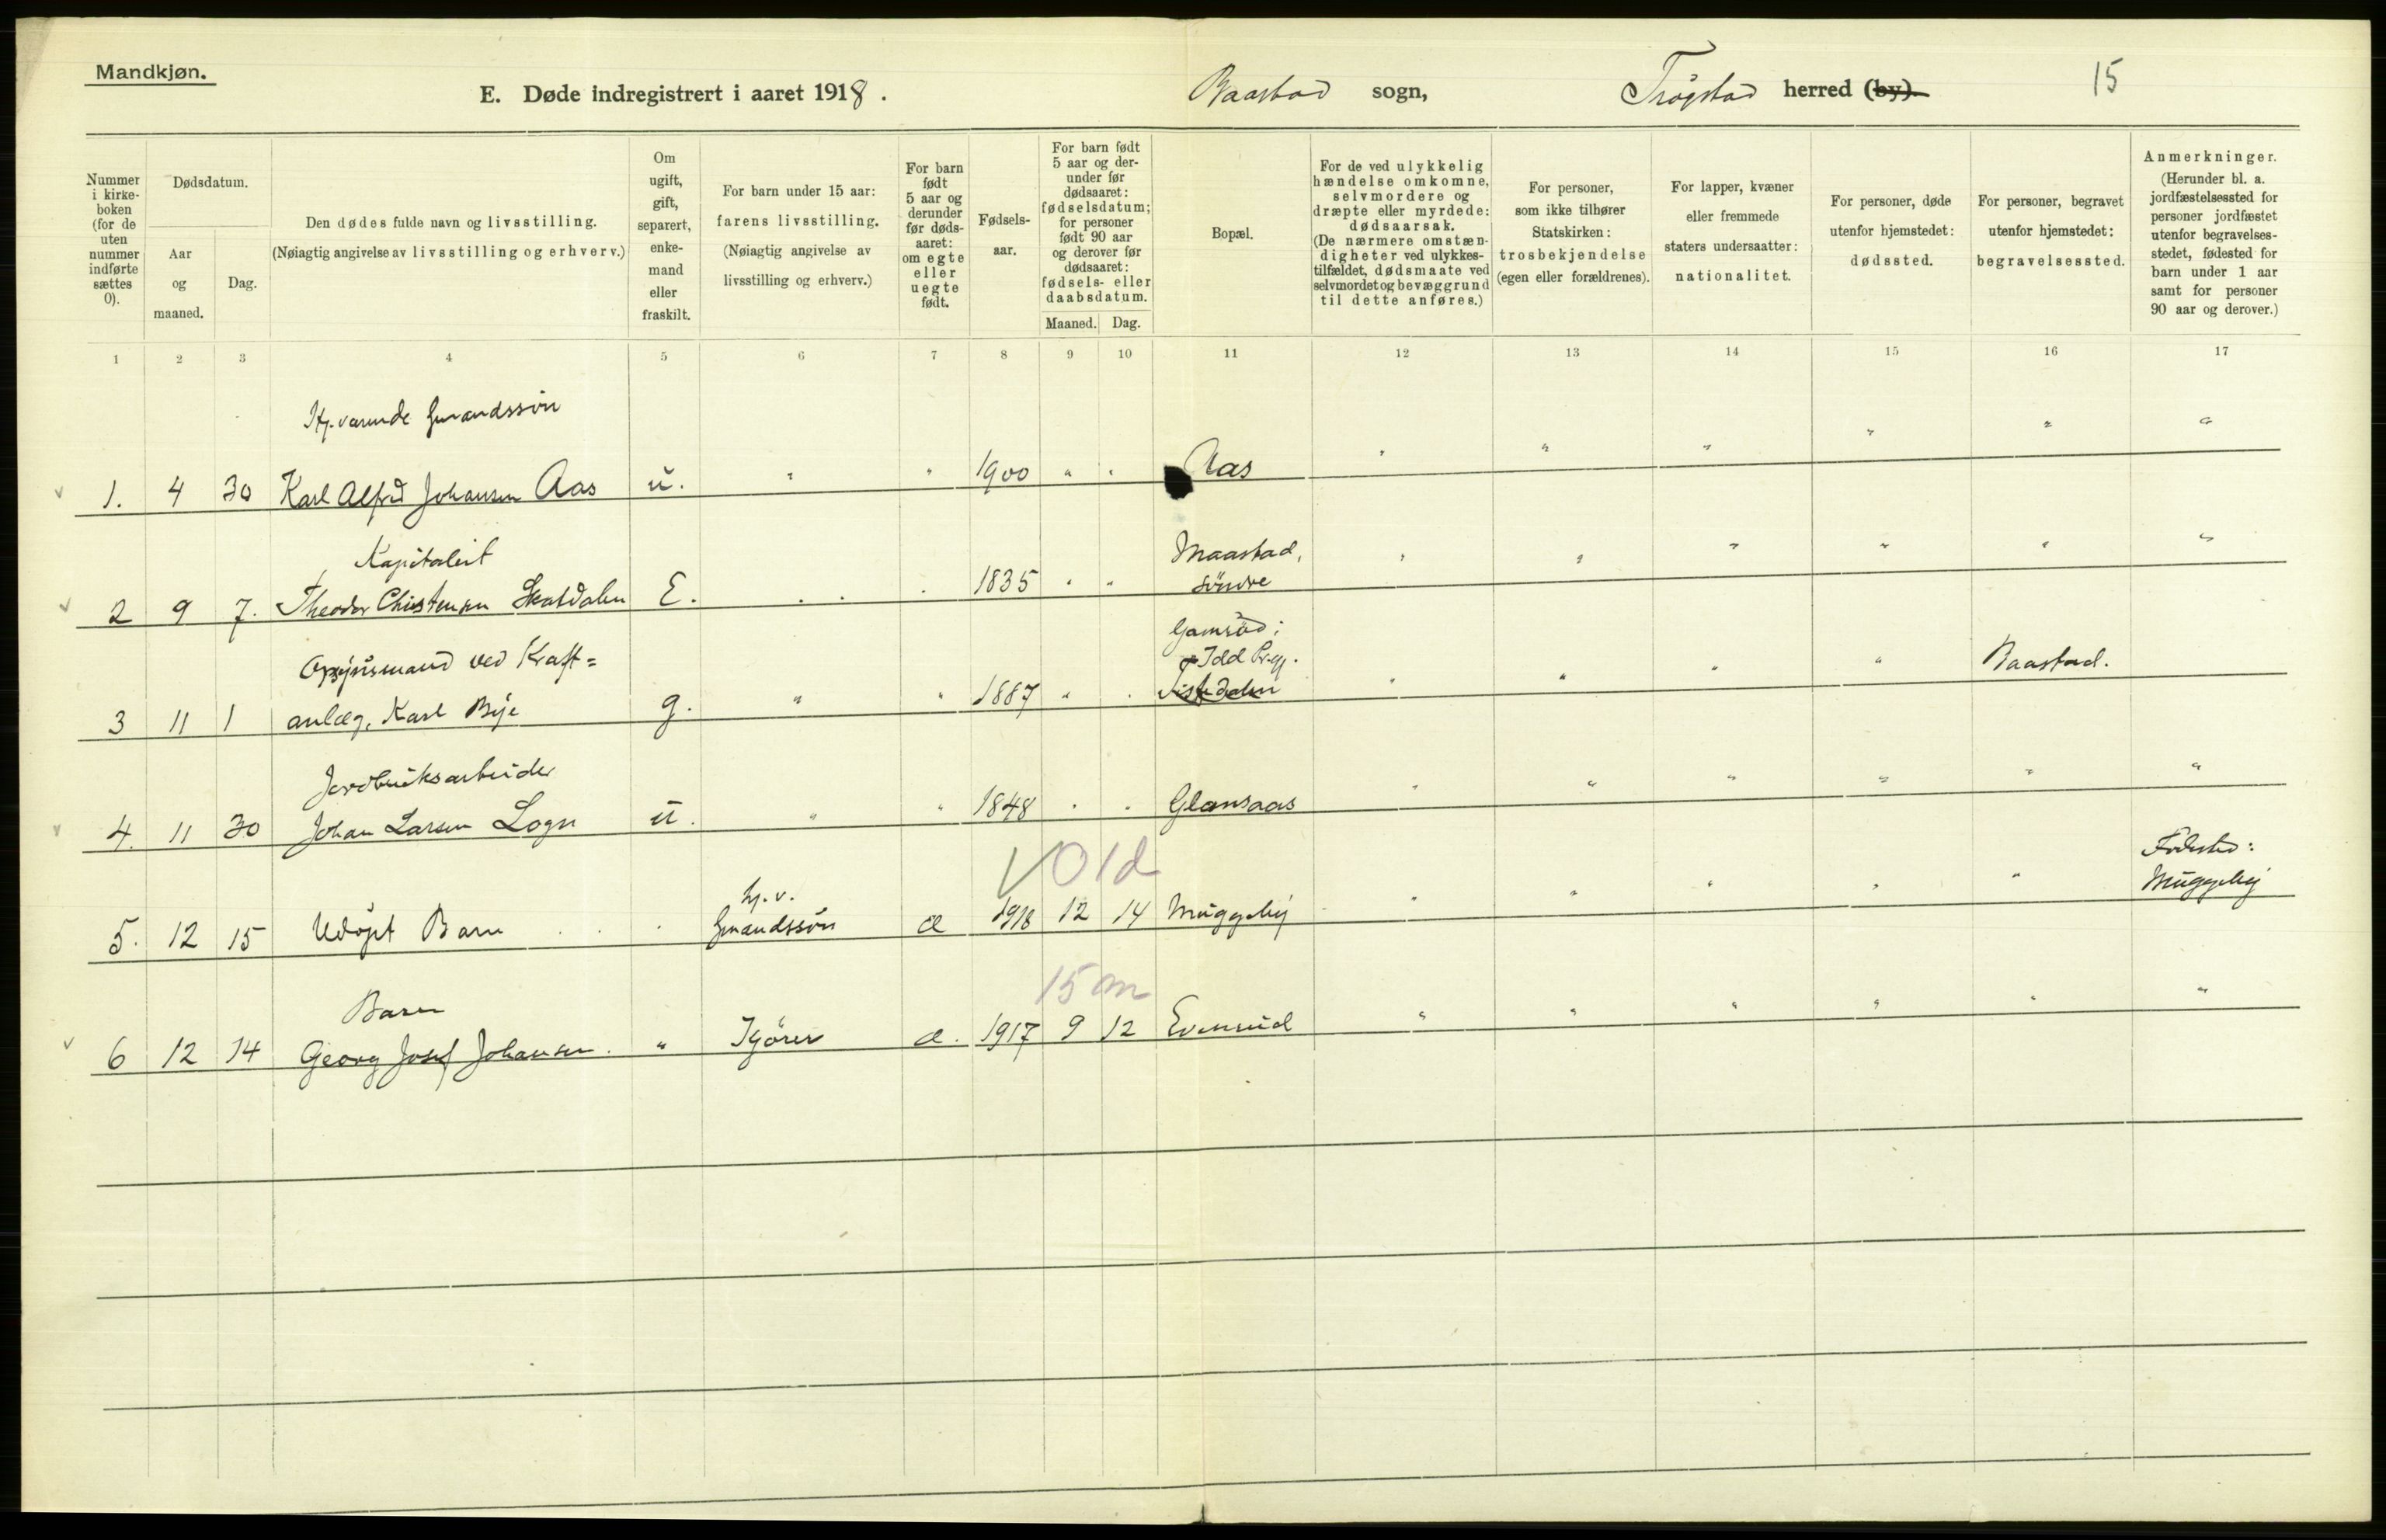 Mandkjøn.
E. Døde indregistrert i aaret 1918.
Baastad sogn,
Trøgstad herred (by).
15
Nummer
i kirke-
boken
(for de
uten
nummer
indførte
sættes
0).
Dødsdatum.
Aar
og
maaned.
Dag.
Den dødes fulde navn og livsstilling.
(Nøiagtig angivelse av livsstilling og erhverv.)
Om
ugift,
gift,
separert,
enke-
mand
eller
fraskilt.
For barn under 15 aar:
farens livsstilling.
(Nøiagtig angivelse av
livsstilling og erhverv.)
For barn
født
5 aar og
derunder
før døds-
aaret:
om egte
eller
uegte
født.
Fødsels-
aar.
For barn født
5 aar og der-
under før
dødsaaret:
fødselsdatum;
for personer
født 90 aar
og derover før
dødsaaret:
fødsels- eller
daabsdatum.
Maaned. Dag.
Bopæl.
For de ved ulykkelig
hændelse omkomne,
selvmordere og
dræpte eller myrdede:
dødsaarsak.
(De nærmere omstæn-
digheter ved ulykkes-
tilfældet, dødsmaate ved
selvmordet og bevæggrund
til dette anføres.)
For personer,
som ikke tilhører
Statskirken:
trosbekjendelse
(egen eller forældrenes).
For lapper, kvæner
eller fremmede
staters undersaatter:
nationalitet.
For personer, døde
utenfor hjemstedet:
dødssted.
For personer, begravet
utenfor hjemstedet:
begravelsessted.
Anmerkninger.
(Herunder bl. a.
jordfæstelsessted for
personer jordfæstet
utenfor begravelses-
stedet, fødested for
barn under 1 aar
samt for personer
90 aar og derover.)
1 2 3 4 5 6 7 8 9 10 11 12 13 14 15 16 17
Hj. varende Gmandssøn
1. 4 30 Karl Alfred Johansen Aas u. " " 1900 " " Aas " " " " " "
Kapitalist
2 9 7. Theodor Christensen Skatdalen E. 1835 " " Maastad,
søndre
Opsynsmand ved Kraft=
3 11 1 anlæg, Karl Bye g. " " 1887 " Gamrød;
Idd Pr.gj.
Tistedalen
Baastad.
Jordbruksarbeider
4. 11 30 Johan Larsen Logn u. " " 1848 Glansaas
Old
5. 12 15 Udøpt Barn
hj. v.
Gmandssøn æ 1918 12 14 Muggeby
Fødested:
Muggeby
15 m
Barn
6 12 14 Georg Josef Johansen. " Kjører æ. 1917 9 12 Evensrud